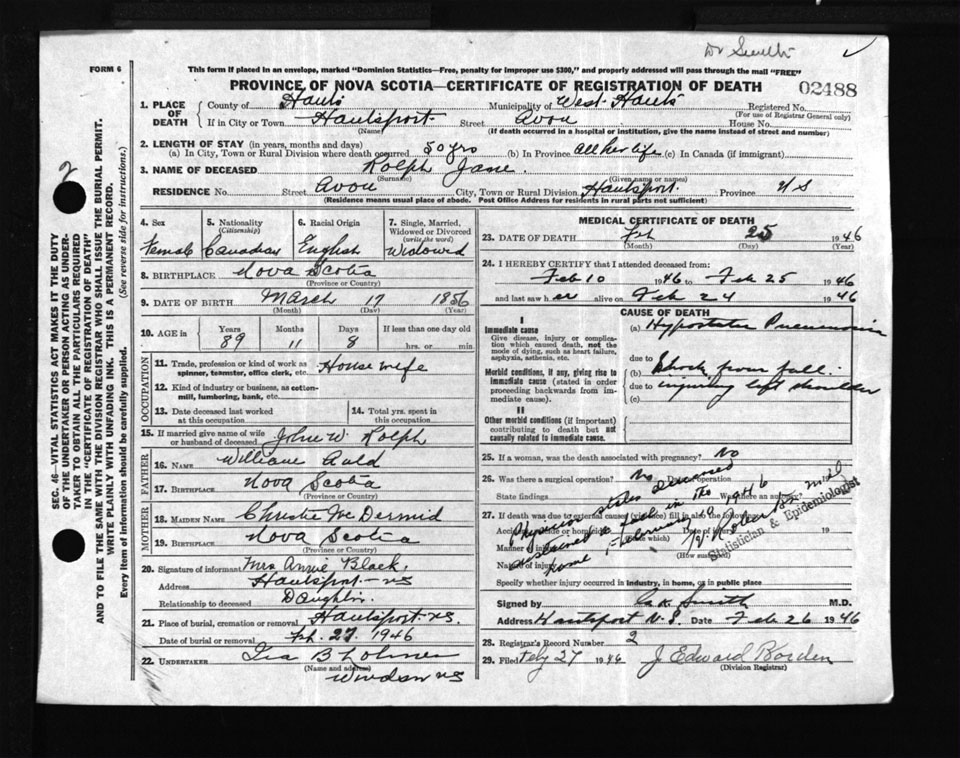 Dr Smith
FORM 6
This form if placed in an envelope, marked "Dominion Statistics—Free, penalty for improper use $300," and properly addressed will pass through the mail "FREE"
PROVINCE OF NOVA SCOTIA—CERTIFICATE OF REGISTRATION OF DEATH
02488
1. PLACE OF DEATH
County of Hants Municipality of West Hants Registered No.
(For use of Registrar General only)
If in City or Town Hantsport Street Avon House No.
(Name) (If death occurred in a hospital or institution, give the name instead of street and number)
2. LENGTH OF STAY (in years, months and days)
(a) In City, Town or Rural Division where death occurred 50 yrs (b) In Province All her life (c) In Canada (if immigrant)
3. NAME OF DECEASED Rolph Jane
(Surname) (Given name or names)
RESIDENCE No. Street Avon City, Town or Rural Division Hantsport Province N S
(Residence means usual place of abode. Post Office Address for residents in rural parts not sufficient)
4. Sex Female
5. Nationality (Citizenship) Canadian
6. Racial Origin English
7. Single, Married, Widowed or Divorced (write the word) Widowed
8. BIRTHPLACE Nova Scotia
(Province or Country)
9. DATE OF BIRTH March 17 1856
(Month) (Day) (Year)
10. AGE in Years 89 Months 11 Days 8 If less than one day old
hrs. or min.
OCCUPATION
11. Trade, profession or kind of work as spinner, teamster, office clerk, etc. House wife
12. Kind of industry or business, as cotton-mill, lumbering, bank, etc.
13. Date deceased last worked at this occupation
14. Total yrs. spent in this occupation
15. If married give name of wife or husband of deceased John W. Rolph
FATHER
16. NAME William Auld
17. BIRTHPLACE Nova Scotia
(Province or Country)
MOTHER
18. MAIDEN NAME Christie McDermid
19. BIRTHPLACE Nova Scotia
(Province or Country)
20. Signature of informant Mrs Annie Black
Address Hantsport—NS
Relationship to deceased Daughter
21. Place of burial, cremation or removal Hantsport NS.
Date of burial or removal Feb. 27. 1946
22. UNDERTAKER Ira B
(Name and address)
Windsor NS
MEDICAL CERTIFICATE OF DEATH
23. DATE OF DEATH Feb 25 1946
(Month) (Day) (Year)
24. I HEREBY CERTIFY that I attended deceased from:
Feb 10 1946 to Feb 25 1946
and last saw her alive on Feb 24 1946
CAUSE OF DEATH
I
Immediate cause
Give disease, injury or complication which caused death, not the mode of dying, such as heart failure, asphyxia, asthenia, etc.
(a) Hypostatic Pneumonia
due to
Morbid conditions, if any, giving rise to immediate cause (stated in order proceeding backwards from immediate cause).
(b) Shock from fall
due to injuring left shoulder
(c)
II
Other morbid conditions (if important) contributing to death but not causally related to immediate cause.
25. If a woman, was the death associated with pregnancy? No
26. Was there a surgical operation? No
State findings Was there an autopsy?
27. If death was due to external causes (violence) fill in also the following:
Accident, suicide or homicide (state which) Date of injury 19
Manner of injury (How sustained)
Nature of injury
Physician states deceased
sustained a fall in the
home 1946
Statistician & Epidemiologist
Specify whether injury occurred in industry, in home, or in public place
Signed by Smith M.D.
Address Hantsport N. S. Date Feb 26 1946
28. Registrar's Record Number 2
29. Filed Feby 27 1946 J Edward Borden
(Division Registrar)
2
SEC. 46—VITAL STATISTICS ACT MAKES IT THE DUTY
OF THE UNDERTAKER OR PERSON ACTING AS UNDER-
TAKER TO OBTAIN ALL THE PARTICULARS REQUIRED
IN THE "CERTIFICATE OF REGISTRATION OF DEATH"
AND TO FILE THE SAME WITH THE DIVISION REGISTRAR WHO SHALL ISSUE THE BURIAL PERMIT.
WRITE PLAINLY WITH UNFADING INK. THIS IS A PERMANENT RECORD.
Every item of information should be carefully supplied. (See reverse side for instructions.)